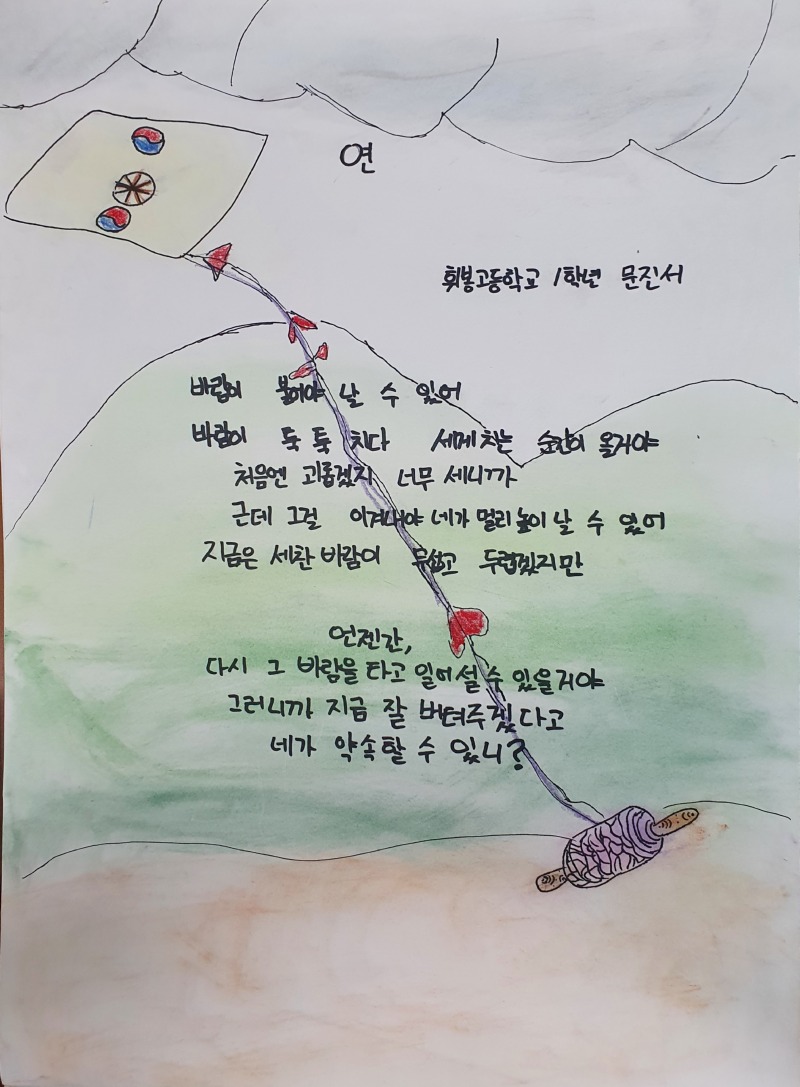 연
휘봉고등학교 1학년 문진서
바람이 불어야 날 수 있어
바람이 툭 툭 치다 세게 치는 순간이 올거야
처음엔 괴롭겠지 너무 세니까
근데 그걸 이겨내야 네가 멀리 높이 날 수 있어
지금은 세찬 바람이 무섭고 두렵겠지만
언젠간,
다시 그 바람을 타고 일어설 수 있을거야
그러니까 지금 잘 버텨주겠다고
네가 약속할 수 있니?